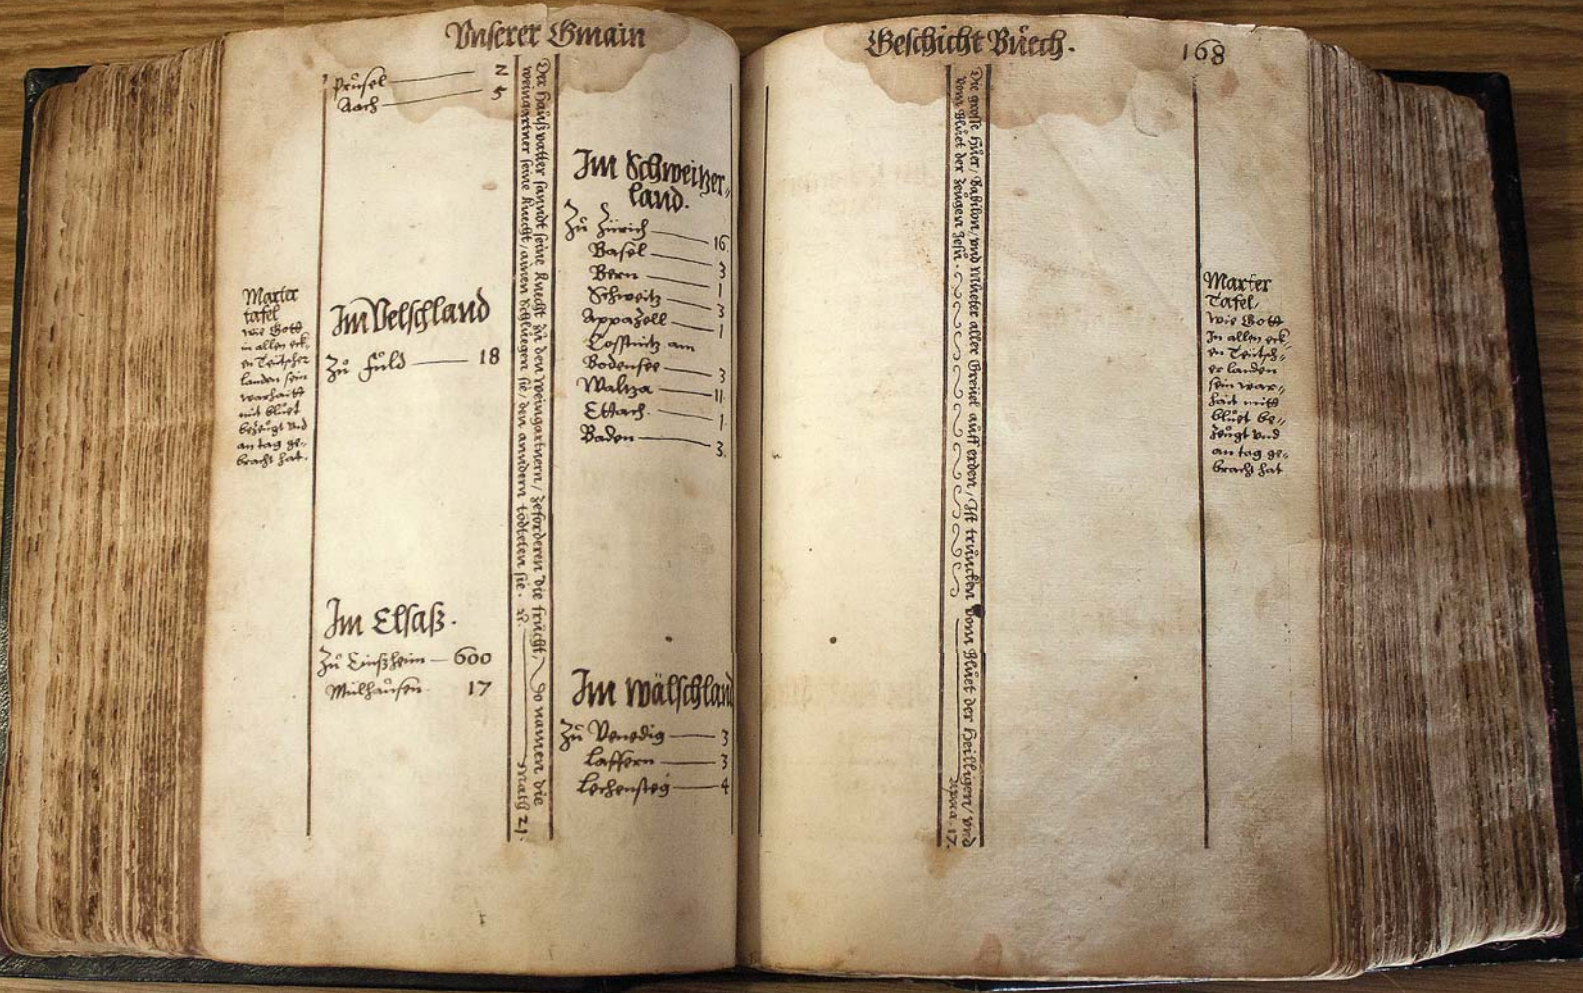 Vnserer Gmain
Prüsel 2
Aach 5
Marter
tafel
wie Gott
in allen eck,,
en Teütscher
landen sein
warhaitt
mit blůet
bezeugt vnd
an tag ge,,
bracht hat.
Im Velschland
Zů Fuld 18
Im Elsaß.
Zů Einßheim 600
Mülhausen. 17
Der haußvatter sanndt seine knecht zů den weingartnern / zefordern die frücht / Do namen die
weingartner seine knecht / ainen schluegen sie / den anndern tödteten sie. Math 21.
Im Schweitzer,,
land.
Zů Zürich 16
Basel 3
Bern 1
Schweitz 3
Appazell 1
Costnitz am
Bodensee 3
Waltza 11
Ettach. 1
Baden 3
Im wälschland
Zů Venedig 3
Laffern 3
Lechensteg 4
Geschicht Bůech.
168
Die grosse Hůer / Babilon / vnd Můeter aller Greüel auff erden / Ist truncken vom Blůet der Heilligen / vnd
vom Blůet der Zeügen Jesu. Apoca. 17.
Marter
Tafel /
wie Gott
In allen eck,,
en Teütsch,,
er landen
sein war,,
hait mitt
blůet be,,
zeügt vnd
an tag ge,,
bracht hat